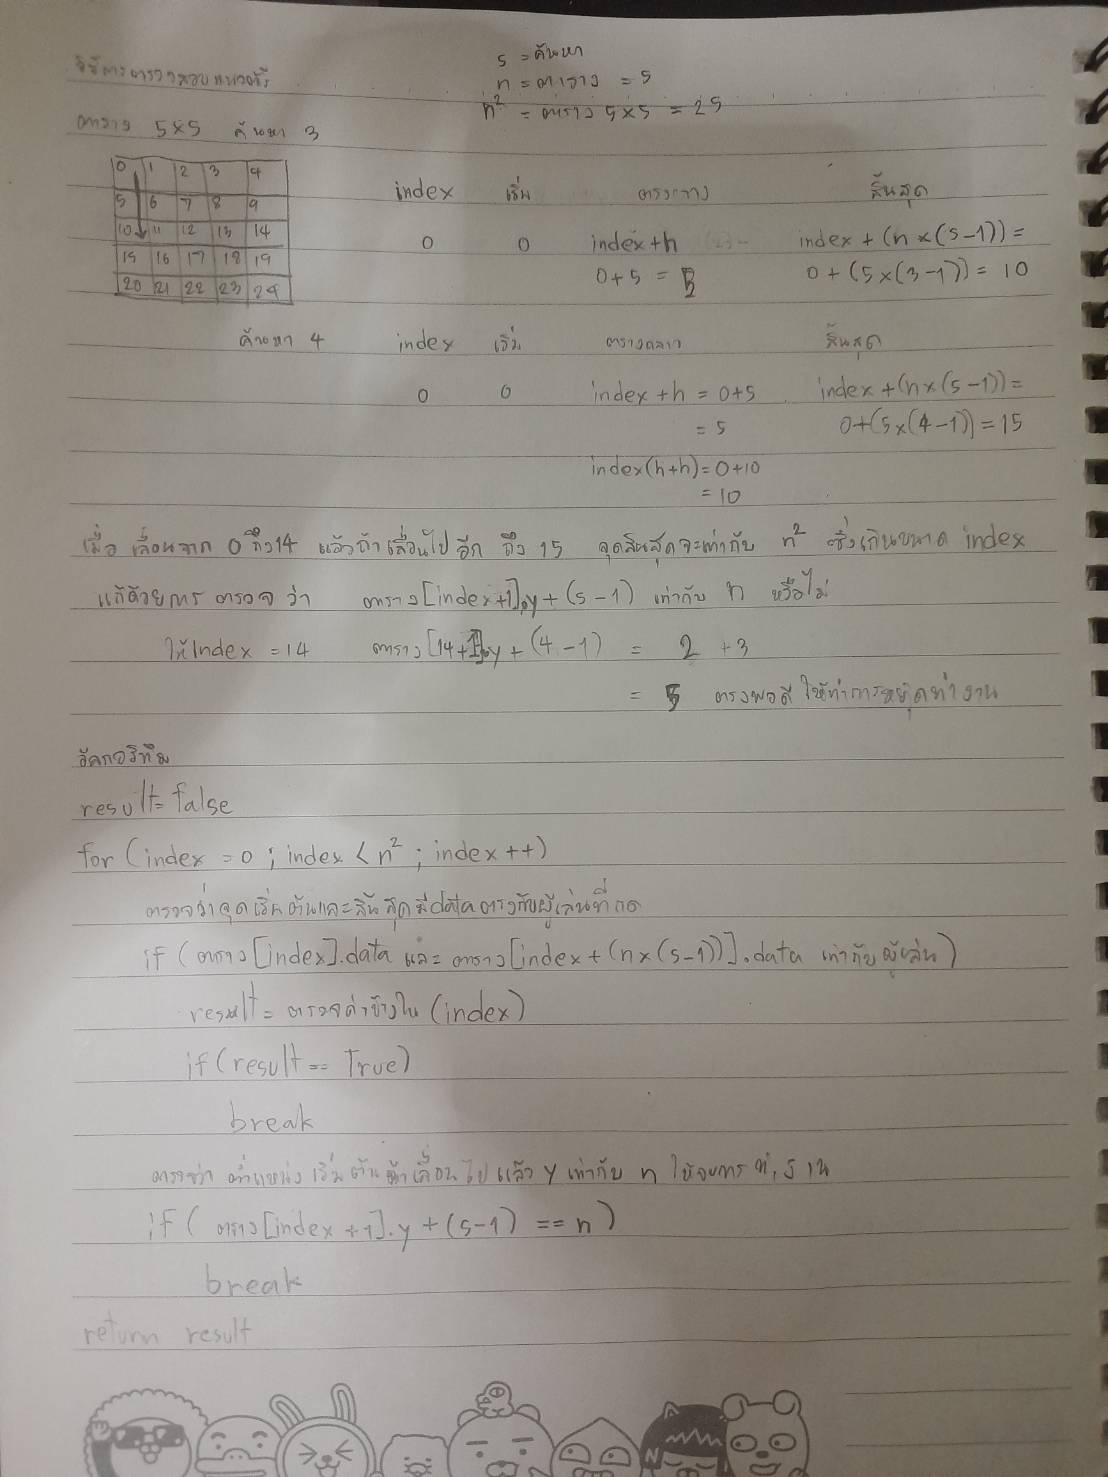 วิธีการตรวจสอบแนวตั้ง
s = ค้นหา
n = ตาราง = 5
n² = ตาราง 5×5 = 25
ตาราง 5×5 ค้นหา 3
0 1 2 3 4
5 6 7 8 9
10 11 12 13 14
15 16 17 18 19
20 21 22 23 24
index เริ่ม ตรงกลาง สิ้นสุด
0 0 index+n index + (n×(s-1)) =
0+5 = 0+(5×(3-1)) = 10
ค้นหา 4 index เริ่ม ตรงกลาง สิ้นสุด
0 0 index+n = 0+5 index+(n×(s-1)) =
= 5 0+(5×(4-1)) = 15
index(n+n) = 0+10
= 10
เมื่อ เลื่อนจาก 0 ถึง 14 แล้วถ้าเลื่อนไปอีก ถึง 15 จุดสิ้นสุดจะเท่ากับ n² ซึ่งเกินขนาด index
แก้ด้วยการ ตรวจ ว่า ตาราง[index+1].y+(s-1) เท่ากับ n หรือไม่
ให้ index = 14 ตาราง[14+1].y+(4-1) = 2 + 3
= 5 ตรงพอดี ให้ทำการหยุดทำงาน
อัลกอริทึม
result = false
for (index = 0 ; index < n² ; index ++)
ตรวจว่าจุดเริ่มต้นและสิ้นสุดมี data ตรงกับผู้เล่นที่กด
if (ตาราง[index].data และ ตาราง[index + (n×(s-1))].data เท่ากับ ผู้เล่น)
result = ตรวจค่าข้างใน (index)
if (result == True)
break
ตรวจว่า ตำแหน่ง เริ่มต้น ถ้าเลื่อนไป แล้ว y เท่ากับ n ให้จบการทำงาน
if ( ตาราง[index +1].y+(s-1) == n )
break
return result